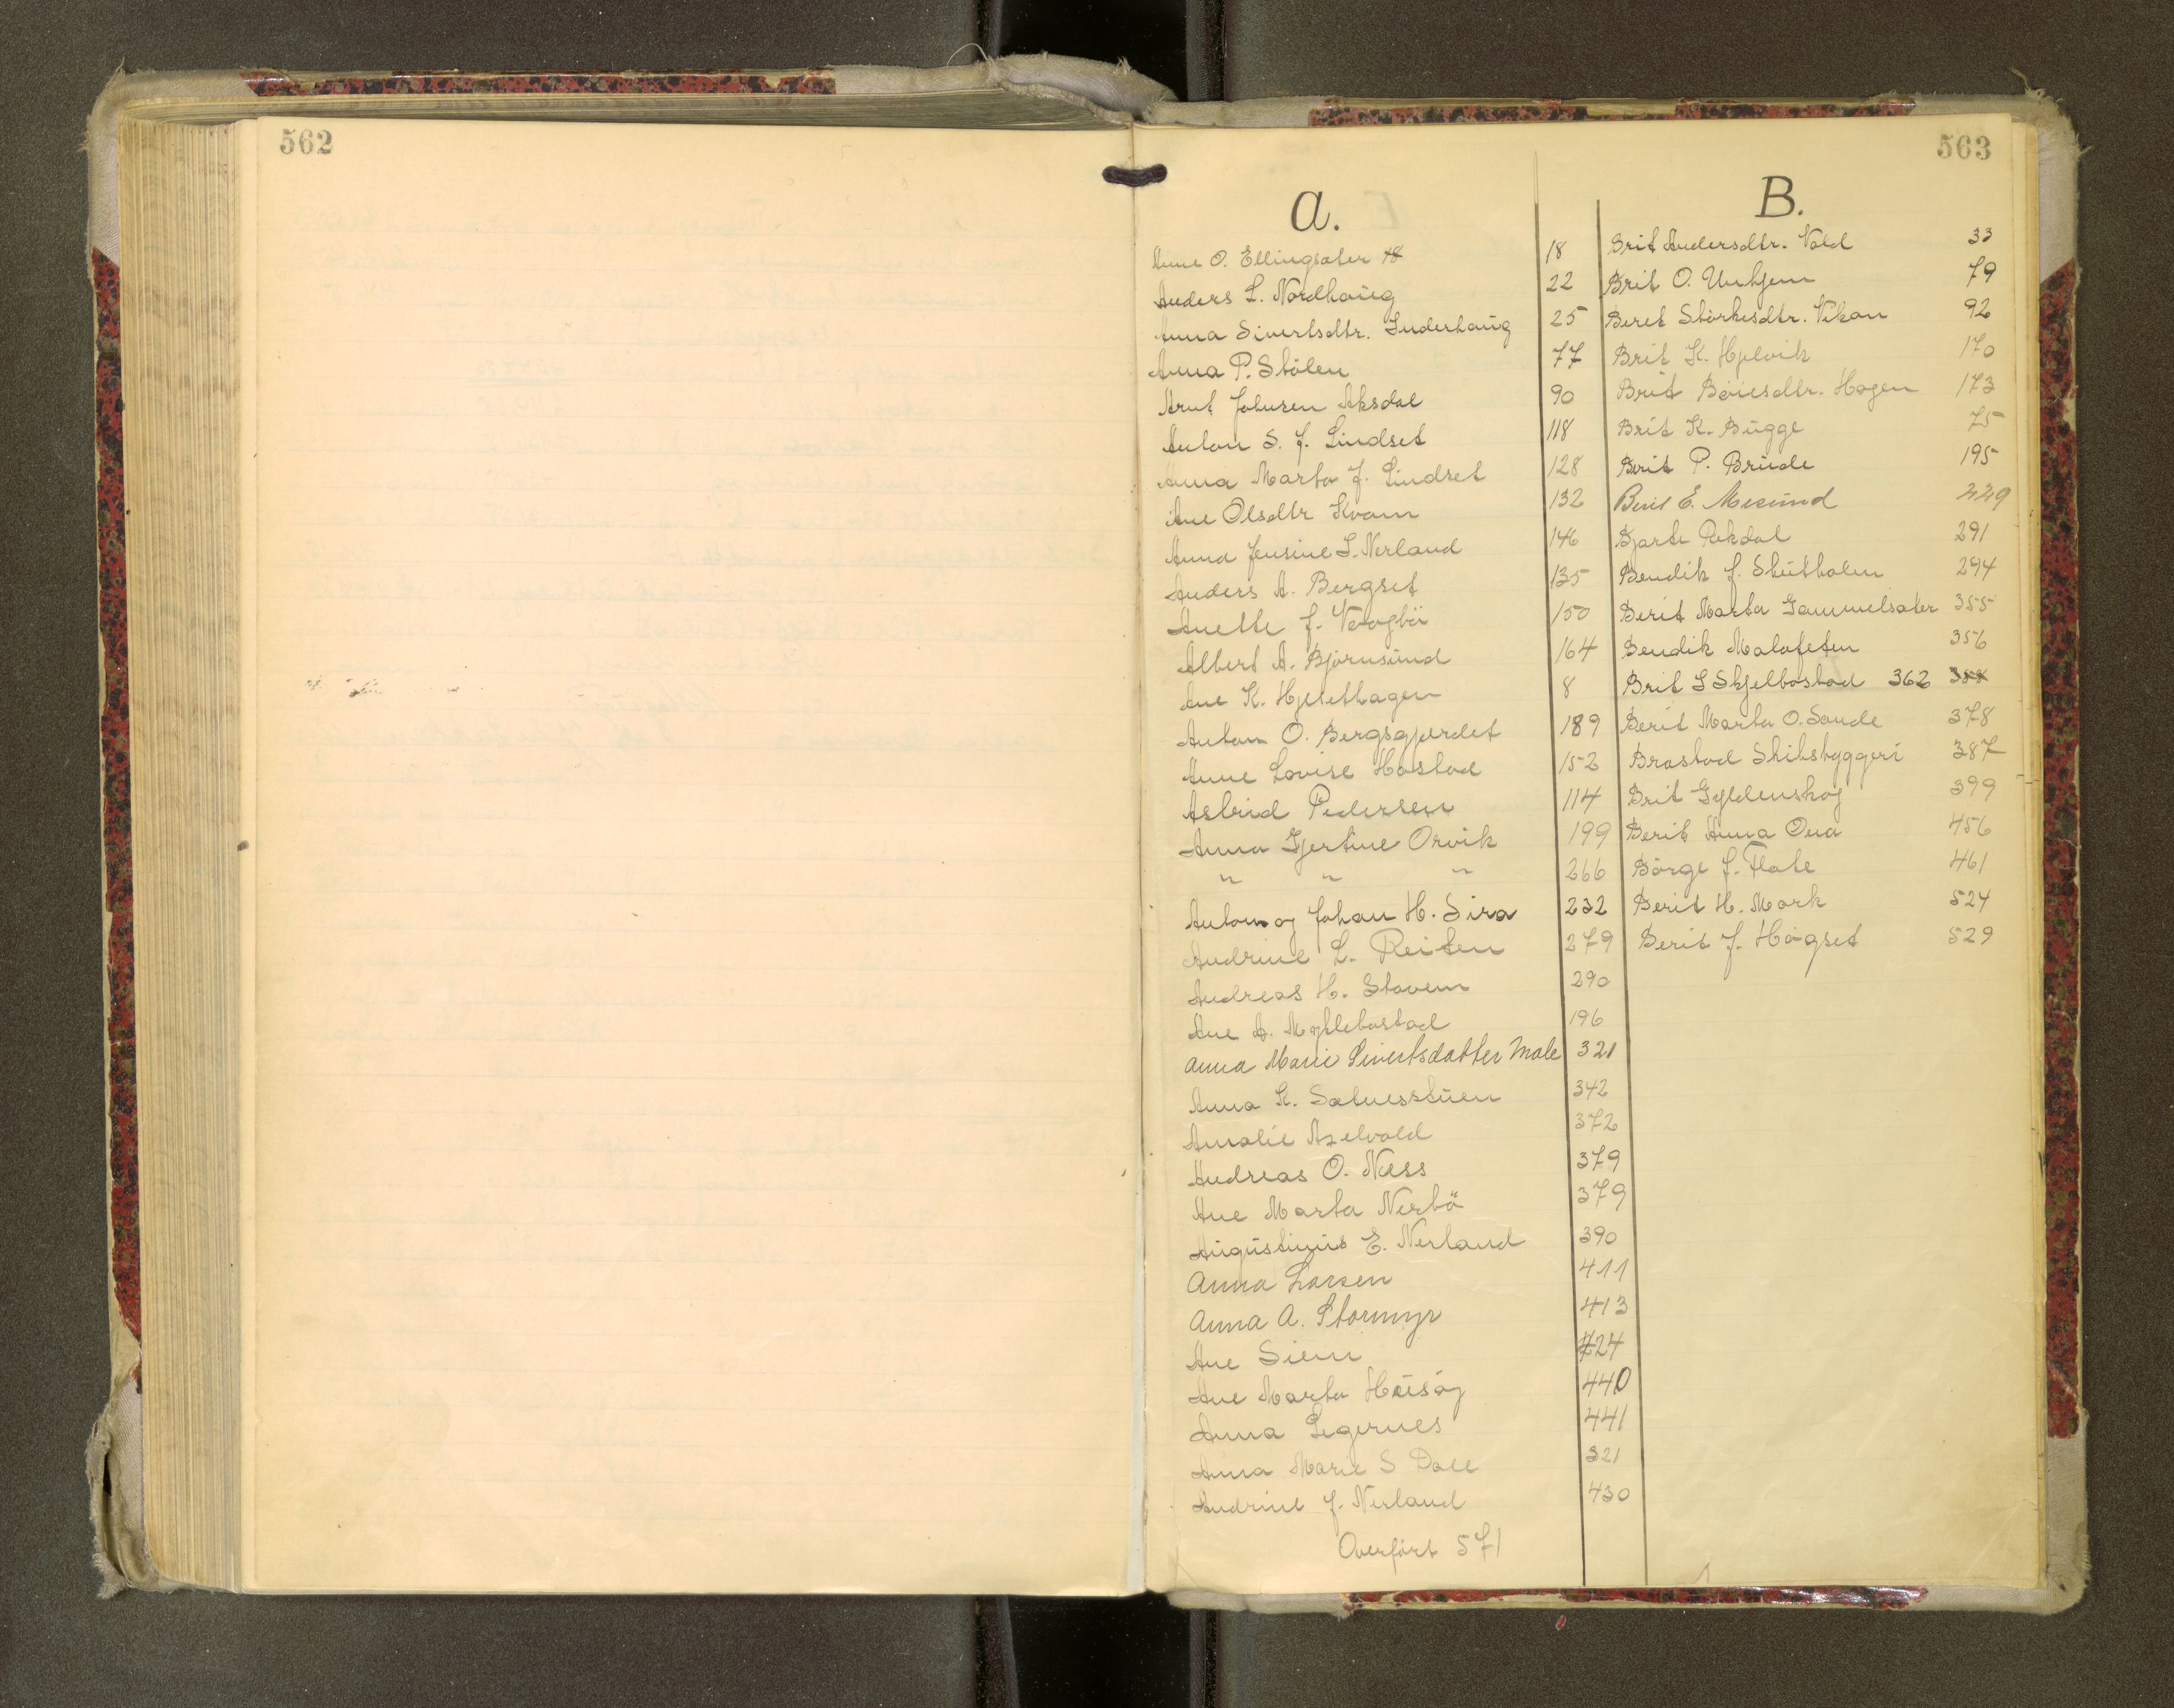 562
563
A.
Anne O. Ellingsæter 18
18
Anders L. Nordhaug
22
Anna Sivertsdtr. Inderhaug
25
Anna P. Stölen
77
Arnt Johnsen Aksdal
90
Anton S. J. Lindset
118
Anna Marta J. Lindset
128
Ane Olsdtr Kvam
132
Anna Jensine L. Nerland
146
Anders A. Bergset
135
Anette J. Vaagbö
150
Albert A. Björnsund
164
Ane K. Hjelethagen
8
Anton O. Bergsgjerdet
189
Anne Lovise Hostad
152
Astrid Pedersen
114
Anna Gjertine Orvik
199
" " "
266
Anton og Johan H. Sira
232
Andrine L. Reiten
279
Andreas H. Stavem
290
Ane A. Myklebostad
196
Anna Marie Sivertsdatter Male
321
Anna K. Sætnesstuen
342
Amalie Axelvold
372
Andreas O. Næss
379
Ane Marta Nerbö
379
Augustinus E. Nerland
390
Anna Larsen
411
Anna A. Stormyr
413
Ane Siem
424
Ane Marta Husöy
440
Anna Legernes
441
Anna Marie S Dale
321
Andrine J. Nerland
430
Overfört 571
B.
Brit Andersdtr. Vold 33
Brit O. Unhjem 79
Beret Störkesdtr. Vikan 92
Brit K. Hjelvik 170
Brit Böiesdtr. Hagen 173
Brit K. Bugge 75
Berit P. Brude 195
Berit E. Mesund 229
Bjarte Rekdal 291
Bendik J. Skutholm 294
Berit Marta Gammelsæter 355
Bendik Malofeten 356
Brit L Skjelbostad 362 358
Berit Marta O. Sande 378
Brastad Skibsbyggeri 387
Brit Gyldenskog 399
Berit Anna Ona 456
Börge J. Flate 461
Berit H. Mork 524
Berit J. Högset 529